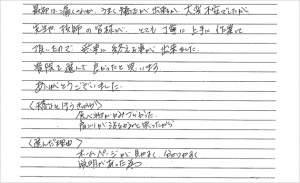 最初は痛くないか、うまく矯正が出来るか 大変不安でしたが
先生や技師の皆様が、とても丁寧に上手に作業して
頂いたので 無事に終える事が出来ました。
貴院を選んで良かったと思います。
ありがとうございました。
〈矯正を行うきっかけ〉
食べ物がかみづらかった
歯ならびが
と思ったから
〈選んだ理由〉
ホームページが見やすく、分かりやすく
説明があった為